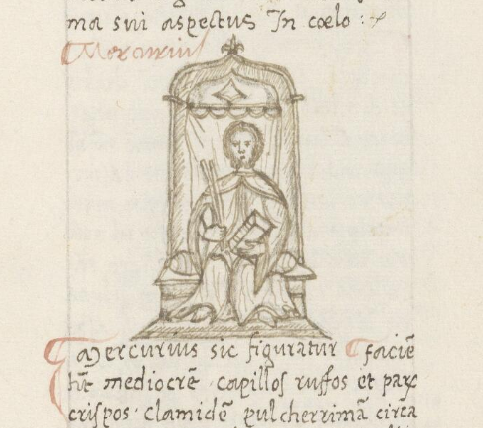 ma sui aspectus In cœlo :
Mercurius
Mercurius sic figuratur faciē
hēt mediocrē · capillos ruffos et paꝝ
crispos · clamidē pulcherrimā circa